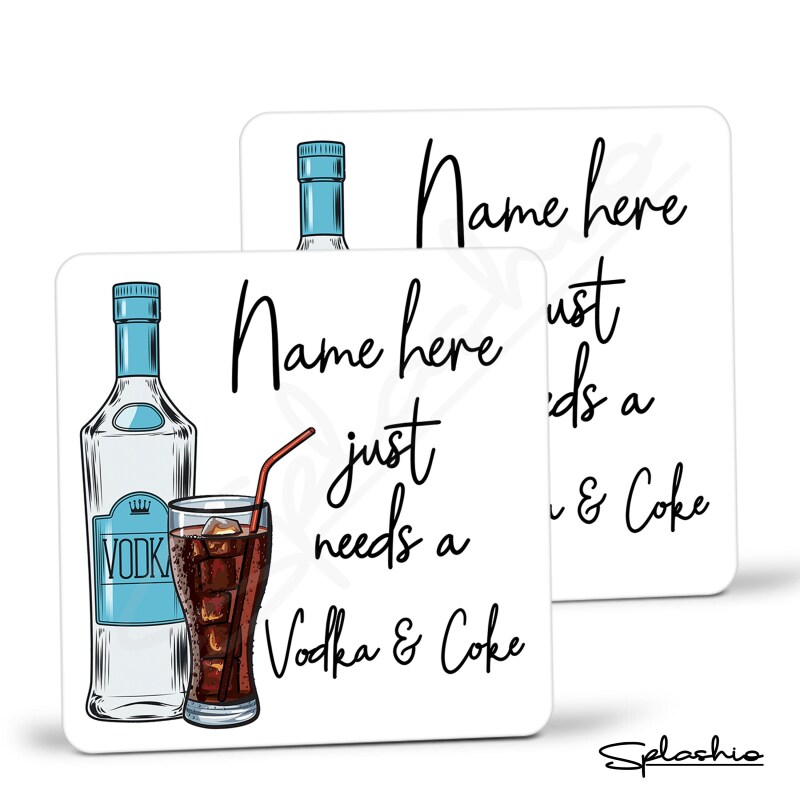 Name here
just
needs a
Vodka & Coke
VODKA
Name here
ust
ds a
& Coke
Splashio